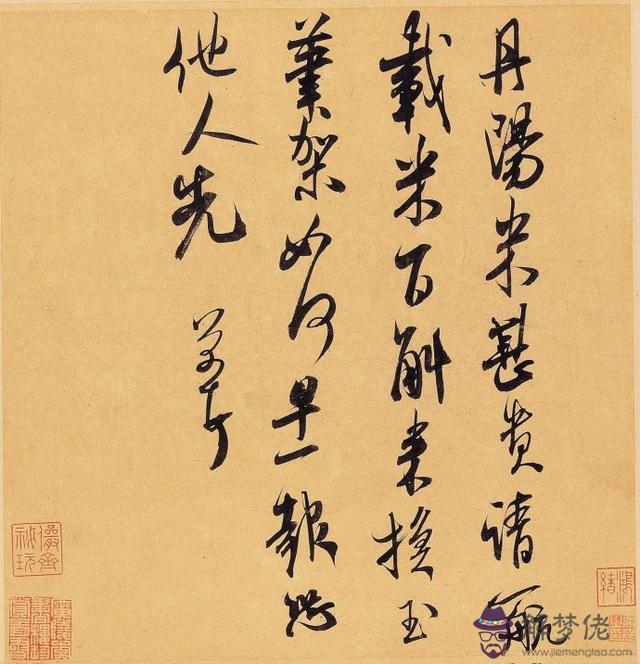 丹陽米甚貴請一航
載米百斛来換玉
筆架如何早一報恐
他人先 芾頓首
鴻緒
儼齋秘玩
解梦佬
www.jiemenglao.com